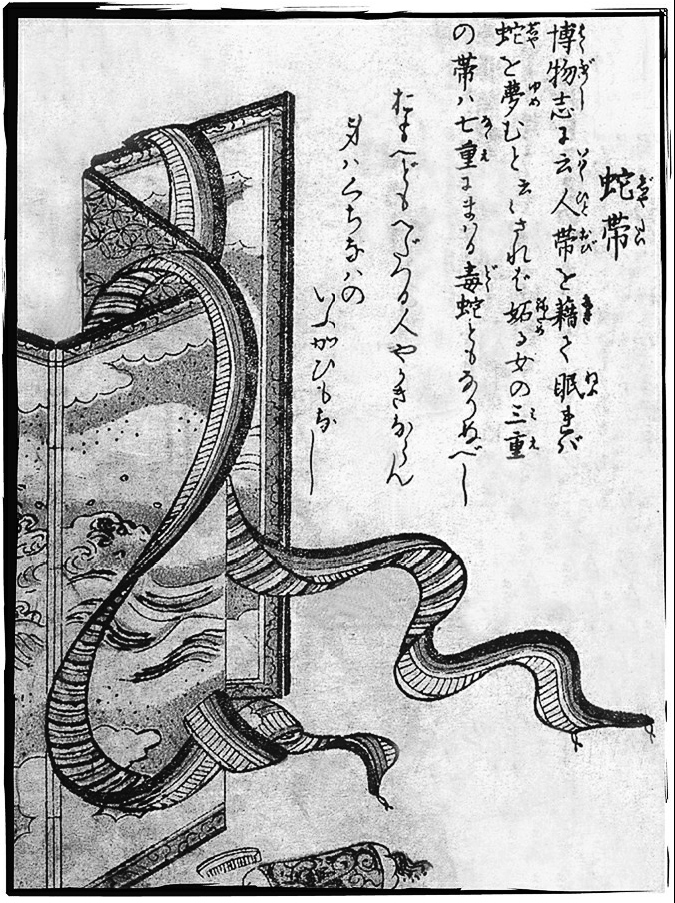 蛇帯
博物志に云人帯を藉て眠れバ
蛇を夢むと云々されば妬る女の三重
の帯ハ七重にまはる毒蛇ともなりぬべし
おもへどもへだつる人やかきならん
身ハくちなハの
いふかひもなし